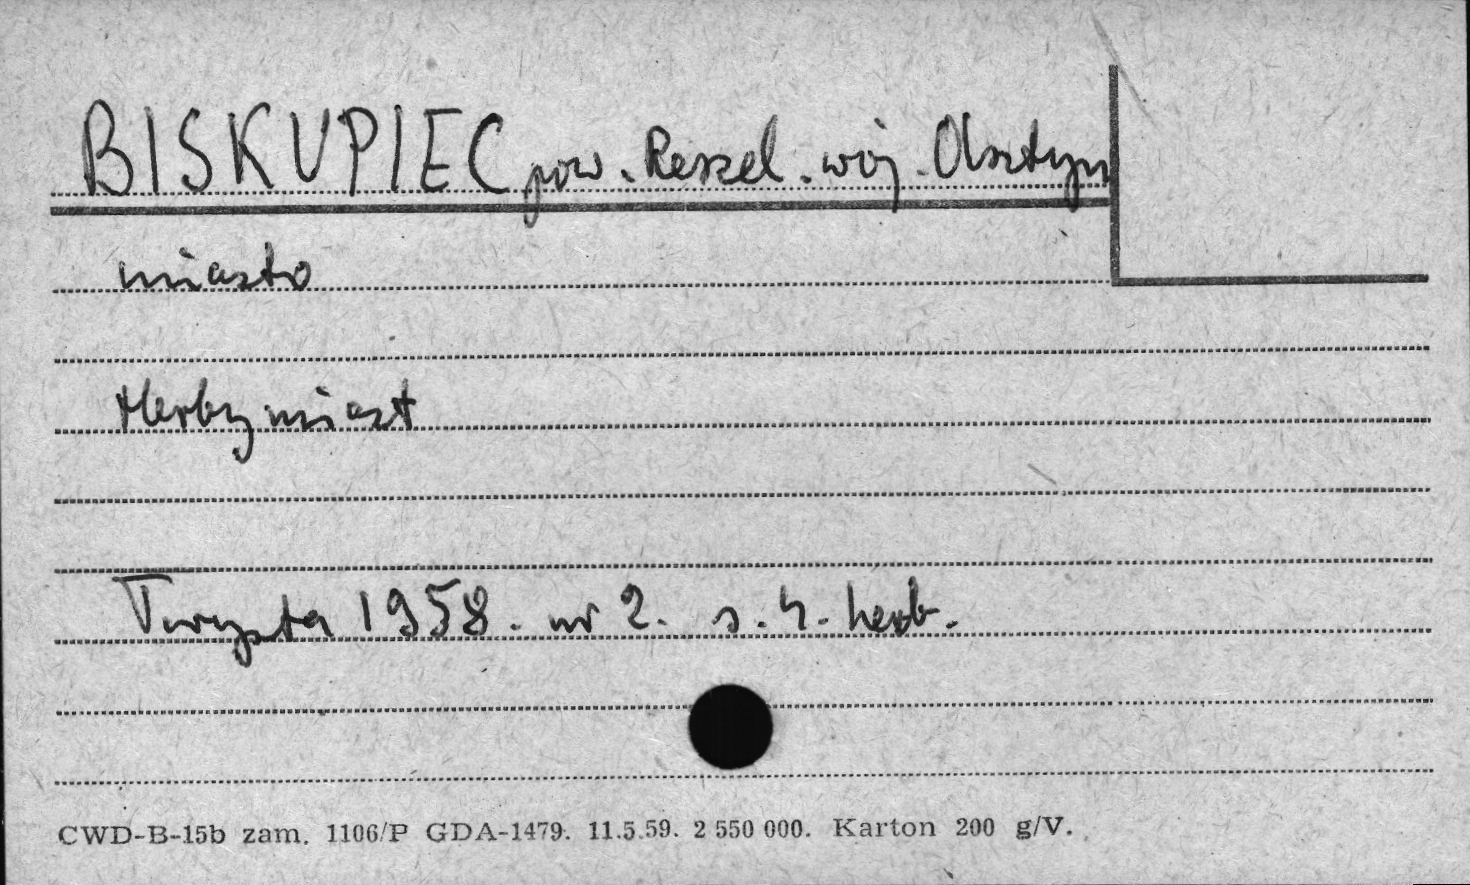 BISKUPIEC pow. Reszel. woj. Olsztyn
miasto
Herby miast
Turysta 1958. nr 2. s. 4. herb.
CWD-B-15b zam. 1106/P GDA-1479. 11.5.59. 2 550 000. Karton 200 g/V.